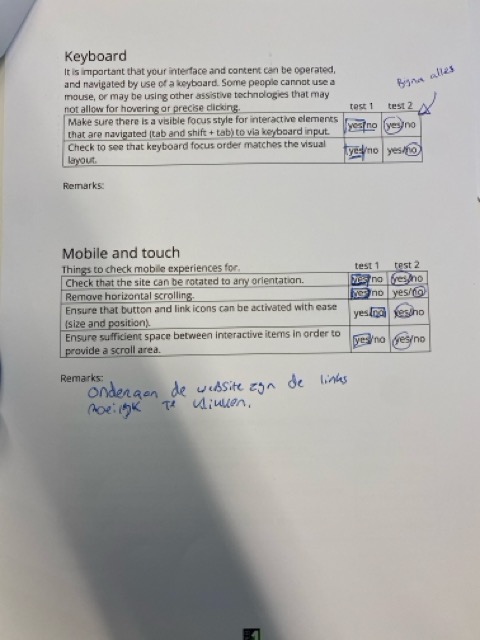 Keyboard
It is important that your interface and content can be operated,
and navigated by use of a keyboard. Some people cannot use a
mouse, or may be using other assistive technologies that may
not allow for hovering or precise clicking.
Bijna alles
test 1 test 2
Make sure there is a visible focus style for interactive elements
that are navigated (tab and shift + tab) to via keyboard input.
yes/no yes/no
Check to see that keyboard focus order matches the visual
layout.
yes/no yes/no
Remarks:
Mobile and touch
Things to check mobile experiences for.
test 1 test 2
Check that the site can be rotated to any orientation. yes/no yes/no
Remove horizontal scrolling. yes/no yes/no
Ensure that button and link icons can be activated with ease
(size and position).
yes/no yes/no
Ensure sufficient space between interactive items in order to
provide a scroll area.
yes/no yes/no
Remarks:
onderaan de website zijn de links
moeilijk te klikken.